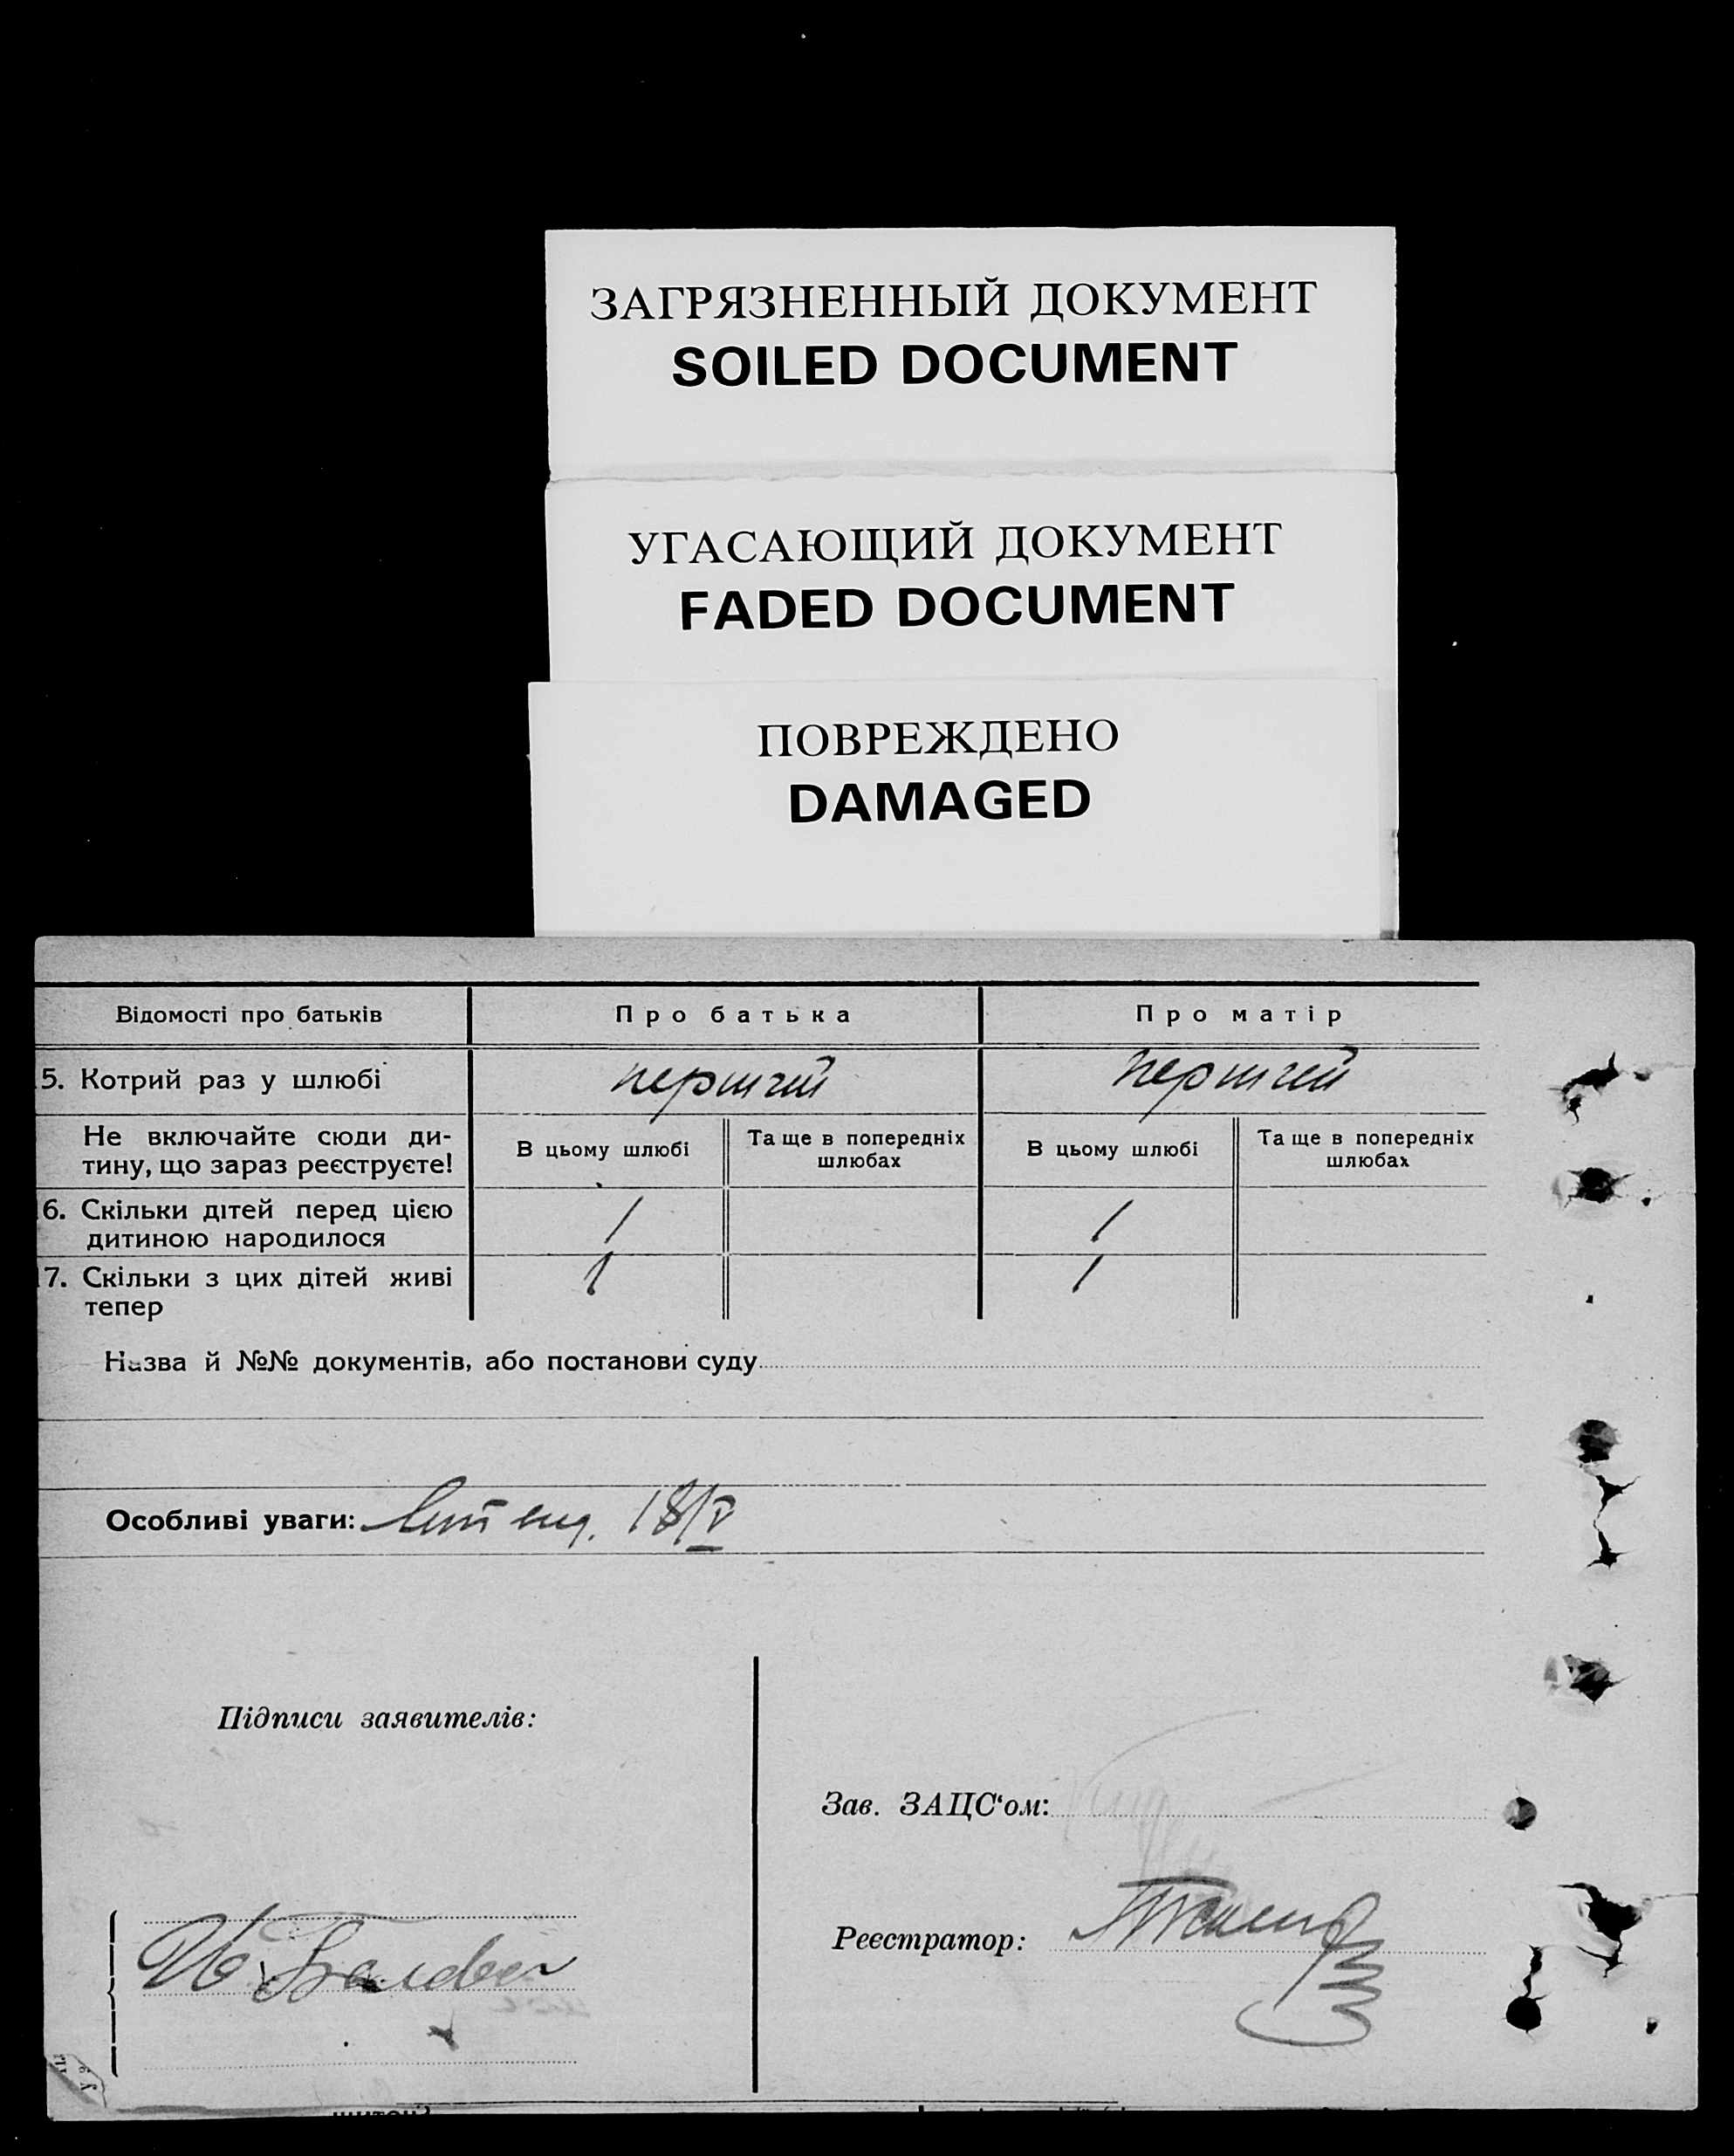 ЗАГРЯЗНЕННЫЙ ДОКУМЕНТ
SOILED DOCUMENT
УГАСАЮЩИЙ ДОКУМЕНТ
FADED DOCUMENT
ПОВРЕЖДЕНО
DAMAGED
Відомості про батьків Про батька Про матір
5. Котрий раз у шлюбі перший перший
Не включайте сюди ди-
тину, що зараз реєструєте!
В цьому шлюбі
Та ще в попередніх
шлюбах
В цьому шлюбі
Та ще в попередніх
шлюбах
6. Скільки дітей перед цією
дитиною народилося
1 1
7. Скільки з цих дітей живі
тепер
1 1
Назва й №№ документів, або постанови суду
Особливі уваги: 18/V
Підписи заявителів:
Зав. ЗАЦС‘ом:
Реєстратор: